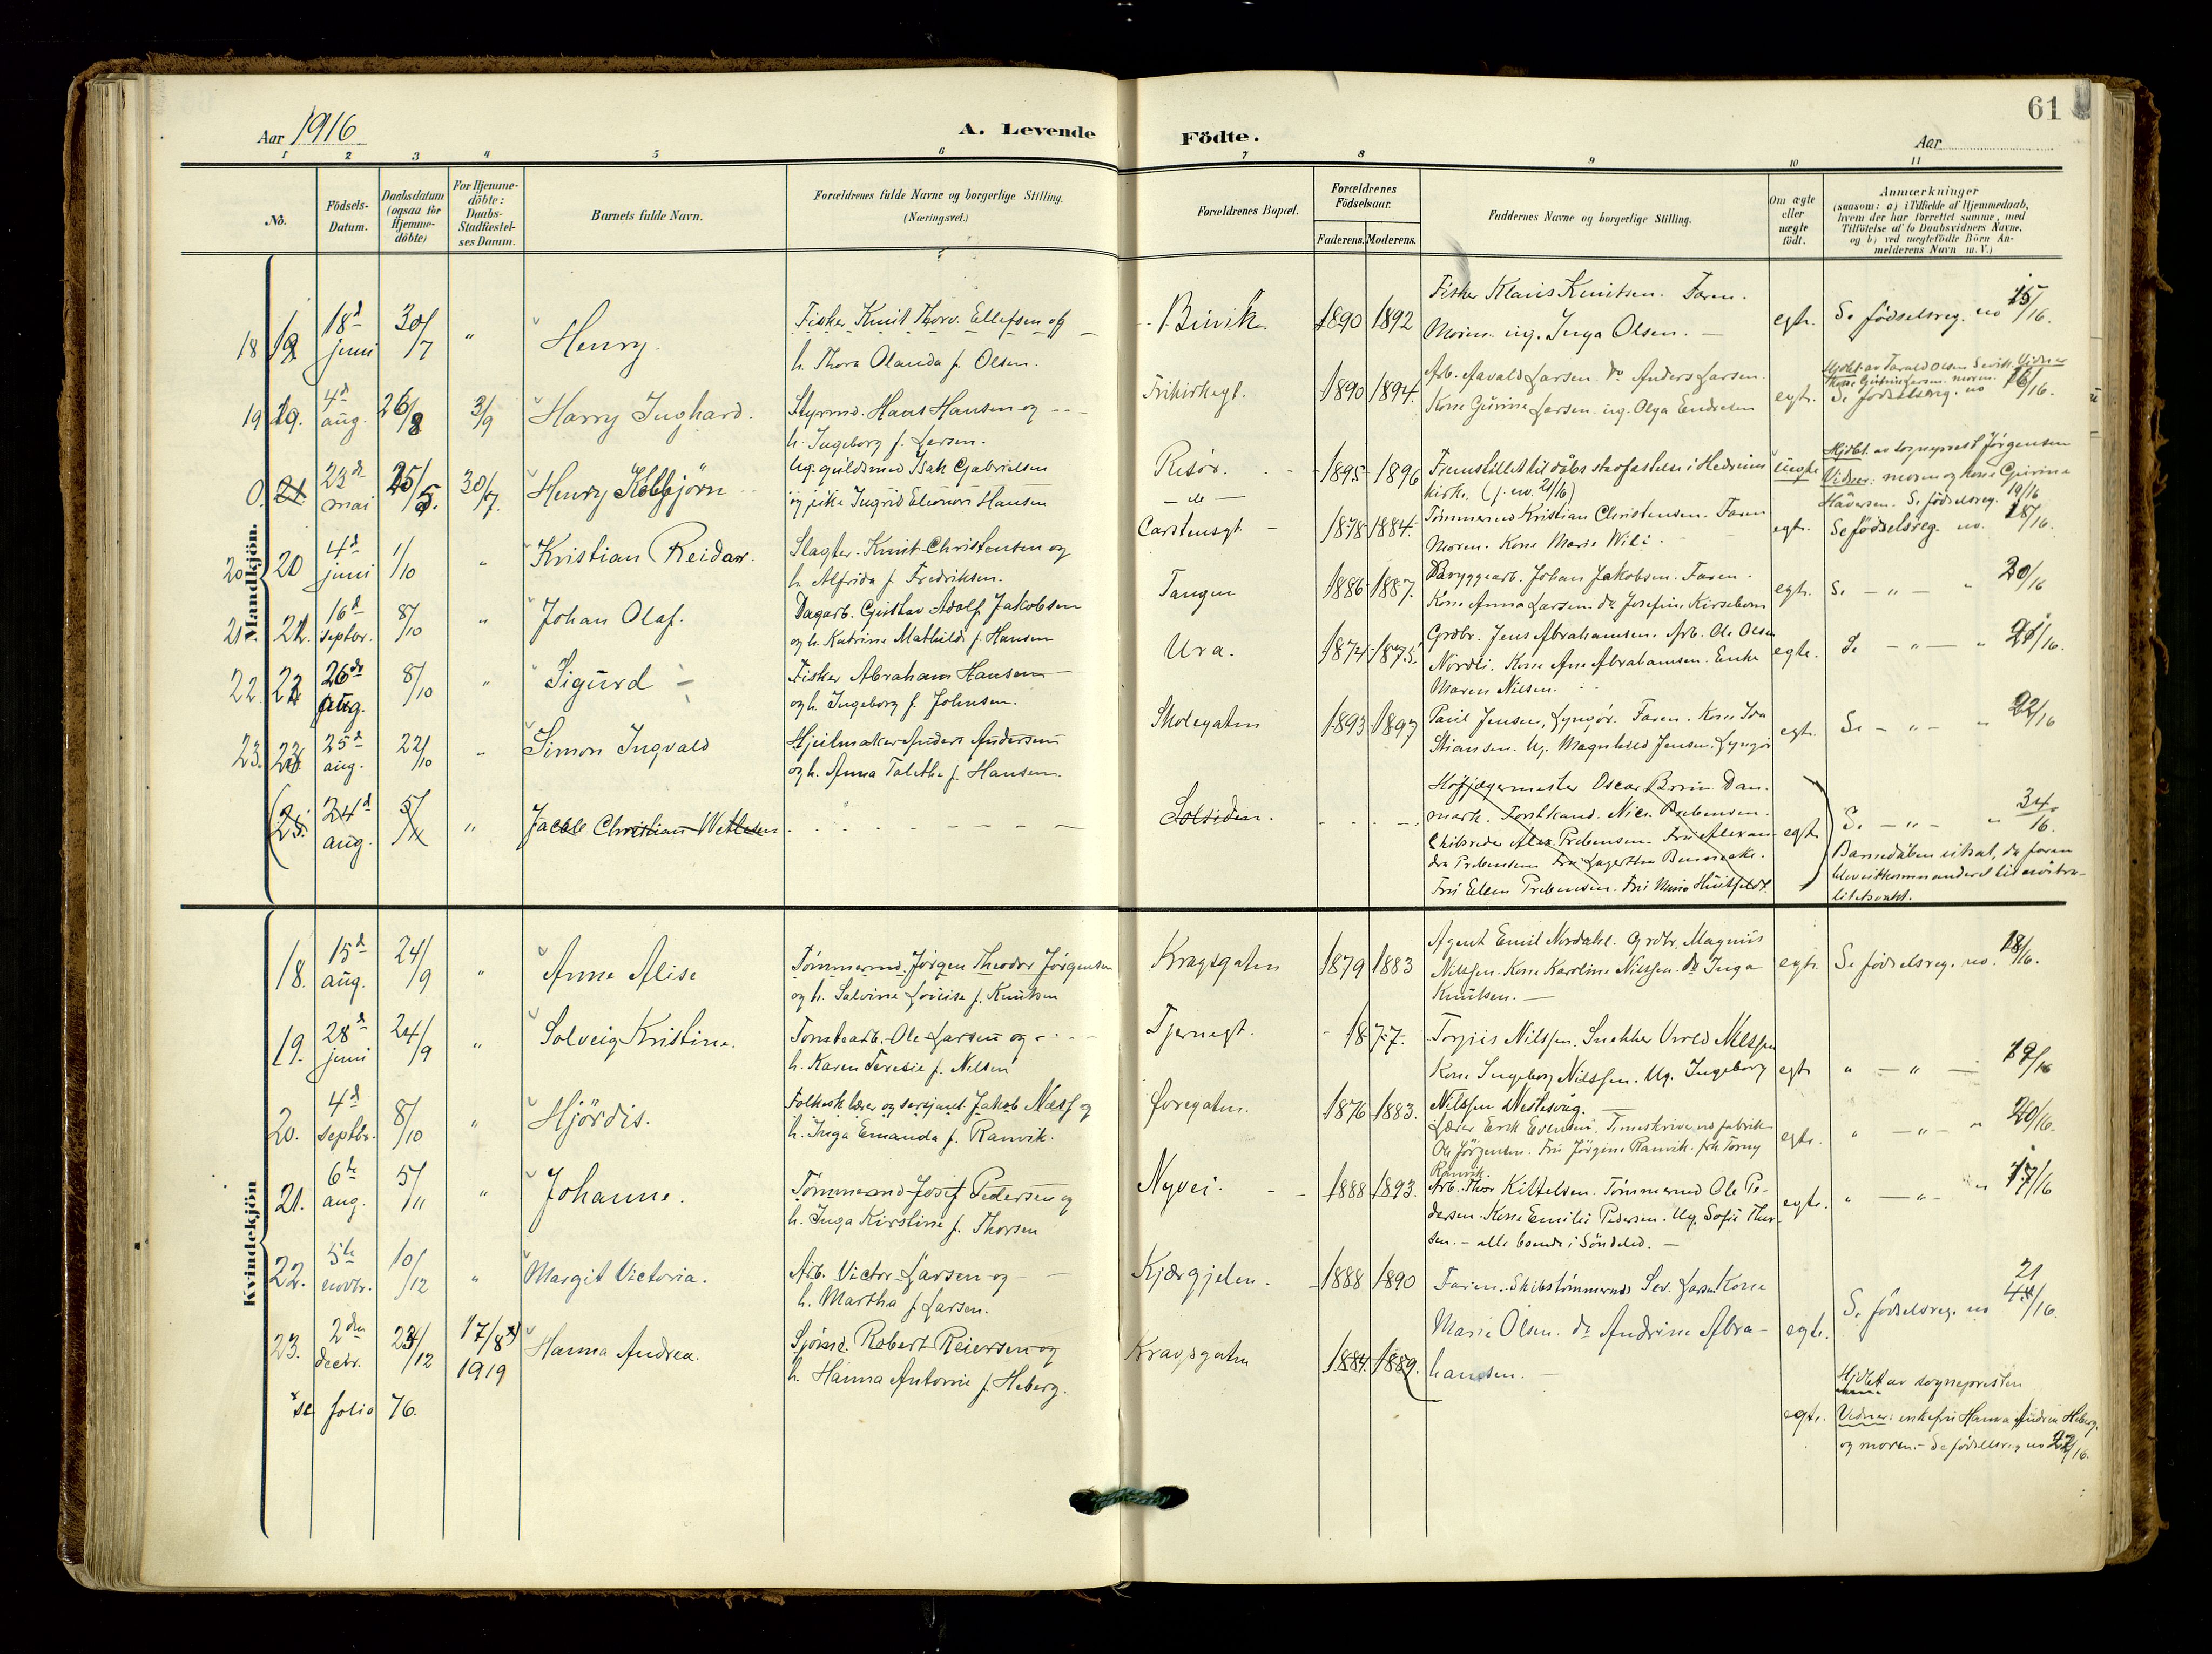 61
Aar 1916
A. Levende Födte.
Aar
1 2 3 4 5 6 7 8 9 10 11
No.
Födsels-
Datum.
Daabsdatum
(ogsaa for
Hjemme-
döbte)
For Hjemme-
döbte:
Daabs-
Stadfæstel-
ses Datum.
Barnets fulde Navn.
Forældrenes fulde Navne og borgerlige Stilling.
(Næringsvei.)
Forældrenes Bopæl.
Forældrenes
Födselsaar.
Faderens. Moderens.
Faddernes Navne og borgerlige Stilling.
Om ægte
eller
uægte
födt.
Anmærkninger
(saasom: a) i Tilfælde af Hjemmedaab,
hvem der har forrettet samme, med
Tilföielse af to Daabsvidners Navne,
og b) ved uægtefödte Börn An-
melderens Navn m. V.)
Mandkjön.
18 18d juni 30/7 " Henry.
Fisker Knut Thorv. Ellefsen og
h. Thora Olanda f. Olsen.
Binvik 1890 1892
Fisker Klaus Knutsen. Faren.
Moren. ug. Inga Olsen. —
egte. Se födselsreg. no 15/16.
19 19. 4d aug. 26/8 3/9 Harry Inghard.
Styrmd. Hans Hansen og
h. Ingeborg f. Larsen.
Frikirkegt. 1890 1894.
Arb. Aavald Larsen. Do Anders Larsen.
Kone Gurine Larsen. ug. Olga Endresen
egte.
Se födselsreg. no 16/16.
0. 21 23de mai 25/5. 30/7. Henry Kolbjörn
Ug. guldsmed Isak Gabrielsen
og pike Ingrid Eleonore Hansen
Risör. 1895 1896
— do —
Fremstillet til dåbs stadfæstelse i Hedrum
kirke. (j. no. 21/16)
uegte
Hjdbt. av sogneprest Jørgensen
Vidner: moren og kone Gurine
Håversen. Se födselsreg. 19/16
20 20 4d juni 1/10 " Kristian Reidar.
Slagter Knut Christensen og
h. Alfrida f. Fredriksen.
Carstensgt 1878 1884.
Tømmermd Kristian Christensen. Faren
Moren. Kone Marie Wili.
egte. Se födselsreg. no. 18/16.
21. 21. 16d septbr. 8/10 " Johan Olaf.
Dagarb. Gustav Adolf Jakobsen
og h. Katrine Mathilde f. Hansen
Tangen 1886 1887.
Bryggearb. Johan Jakobsen. Faren.
Kone Anna Larsen. do Josefine Kirseborn
egte. Se — " — " 20/16
22. 22 26de aug. 8/10 " Sigurd
Fisker Abraham Hansen
og h. Ingeborg f. Johnsen.
Ura. 1874 1875.
Grdbr. Jens Abrahamsen. Arb. Ole Olsen
Nordli. Kone Ane Abrahamsen. Enke
Maren Nilsen.
egte. Se — " — " 21/16.
23. 23 25d aug. 22/10 " Simon Ingvald
Hjulmaker Anders Andersen
og h. Anna Talethe f. Hansen.
Skolegaten 1893 1897
Paul Jensen, Lyngör. Faren. Kone Ida
Stiansen. Ug. Magnhild Jensen, Lyngör
egte. Se — " — " 22/16
(25. 24d aug. 5/11 " Jacob Christian Wetlesen
Solsiden.
Hofjægermester Oscar Bruun Dan-
mark. Forstkand. Nico. Prebensen.
Skibsreder Alex. Prebensen. Fru Alexan-
dra Prebensen. Fru Lagertha Bennecke.
Fru Ellen Prebensen. Fru Mimi Huitfeldt.
egte Se — " — " 34/16.
Barnedåben utsat, da faren
blev utkommanderet til nöitra-
litetsvakt.
Kvindekjön
18. 15d aug. 24/9 " Anne Alise
Tømmermd. Jørgen Theodor Jørgensen
og h. Salvine Lovise f. Knutsen
Kragsgaten 1879 1883
Agent Emil Nordahl. Grdbr. Magnus
Nilssen. Kone Karoline Nilssen. do Inga
Knutsen. —
egte. Se födselsreg. no. 18/16.
19. 28d juni 24/9 " Solveig Kristine.
Tomtearb. Ole Larsen og
h. Karen Teresie f. Nilsen
Tjernegt. 1877.
Torjus Nilssen. Snekker Uvold Nilssen
Kone Ingeborg Nilssen. Ug. Ingeborg
Nilssen Westesvåg. —
egte " — " — 19/16
20. 4d septbr. 8/10 " Hjördis.
Folkesk.lærer og serjeant Jakob Næss og
h. Inga Emanda f. Ranvik.
Øvregaten. 1876 1883.
Lærer Erik Evensen. Timeskriver ved fabrik
Ole Jörgensen. Fru Jörgine Ranvik. frk Torny
Ranvik.
egte. " — " — " 20/16.
21. 6te aug. 5/11 " Johanne.
Tømmermd Josef Pedersen og
h. Inga Kirstine f. Thorsen
Nyvei. 1888 1893.
Arb. Thor Kittelsen. Tømmermd Ole Pe-
dersen. Kone Emilie Pedersen. Ug. Sofie Thor-
sen. — alle boende i Söndeled. —
egte. " — " — " 17/16
22. 5te novbr. 10/12 " Margit Victoria.
Arb. Victor Larsen og
h. Martha f. Larsen.
Kjærgjelen. 1888 1890
Faren. Skibstømmermd Sev. Larsen Kone
Marie Olsen. do Andrine Abra-
hamsen. —
egte. Se födselsreg. no 21/16.
23. 2den decbr. 23/12 17/8 x) 1919 Hanna Andrea.
Sjömd. Robert Reiersen og
h. Hanna Antonie f. Heberg.
Kragsgaten 1884. 1889.
egte.
Hjdbt av sognepresten
Vidner: enkefru Hanna Andrea Heberg
og moren. — Se födselsreg no 22/16.
x se folio 76.